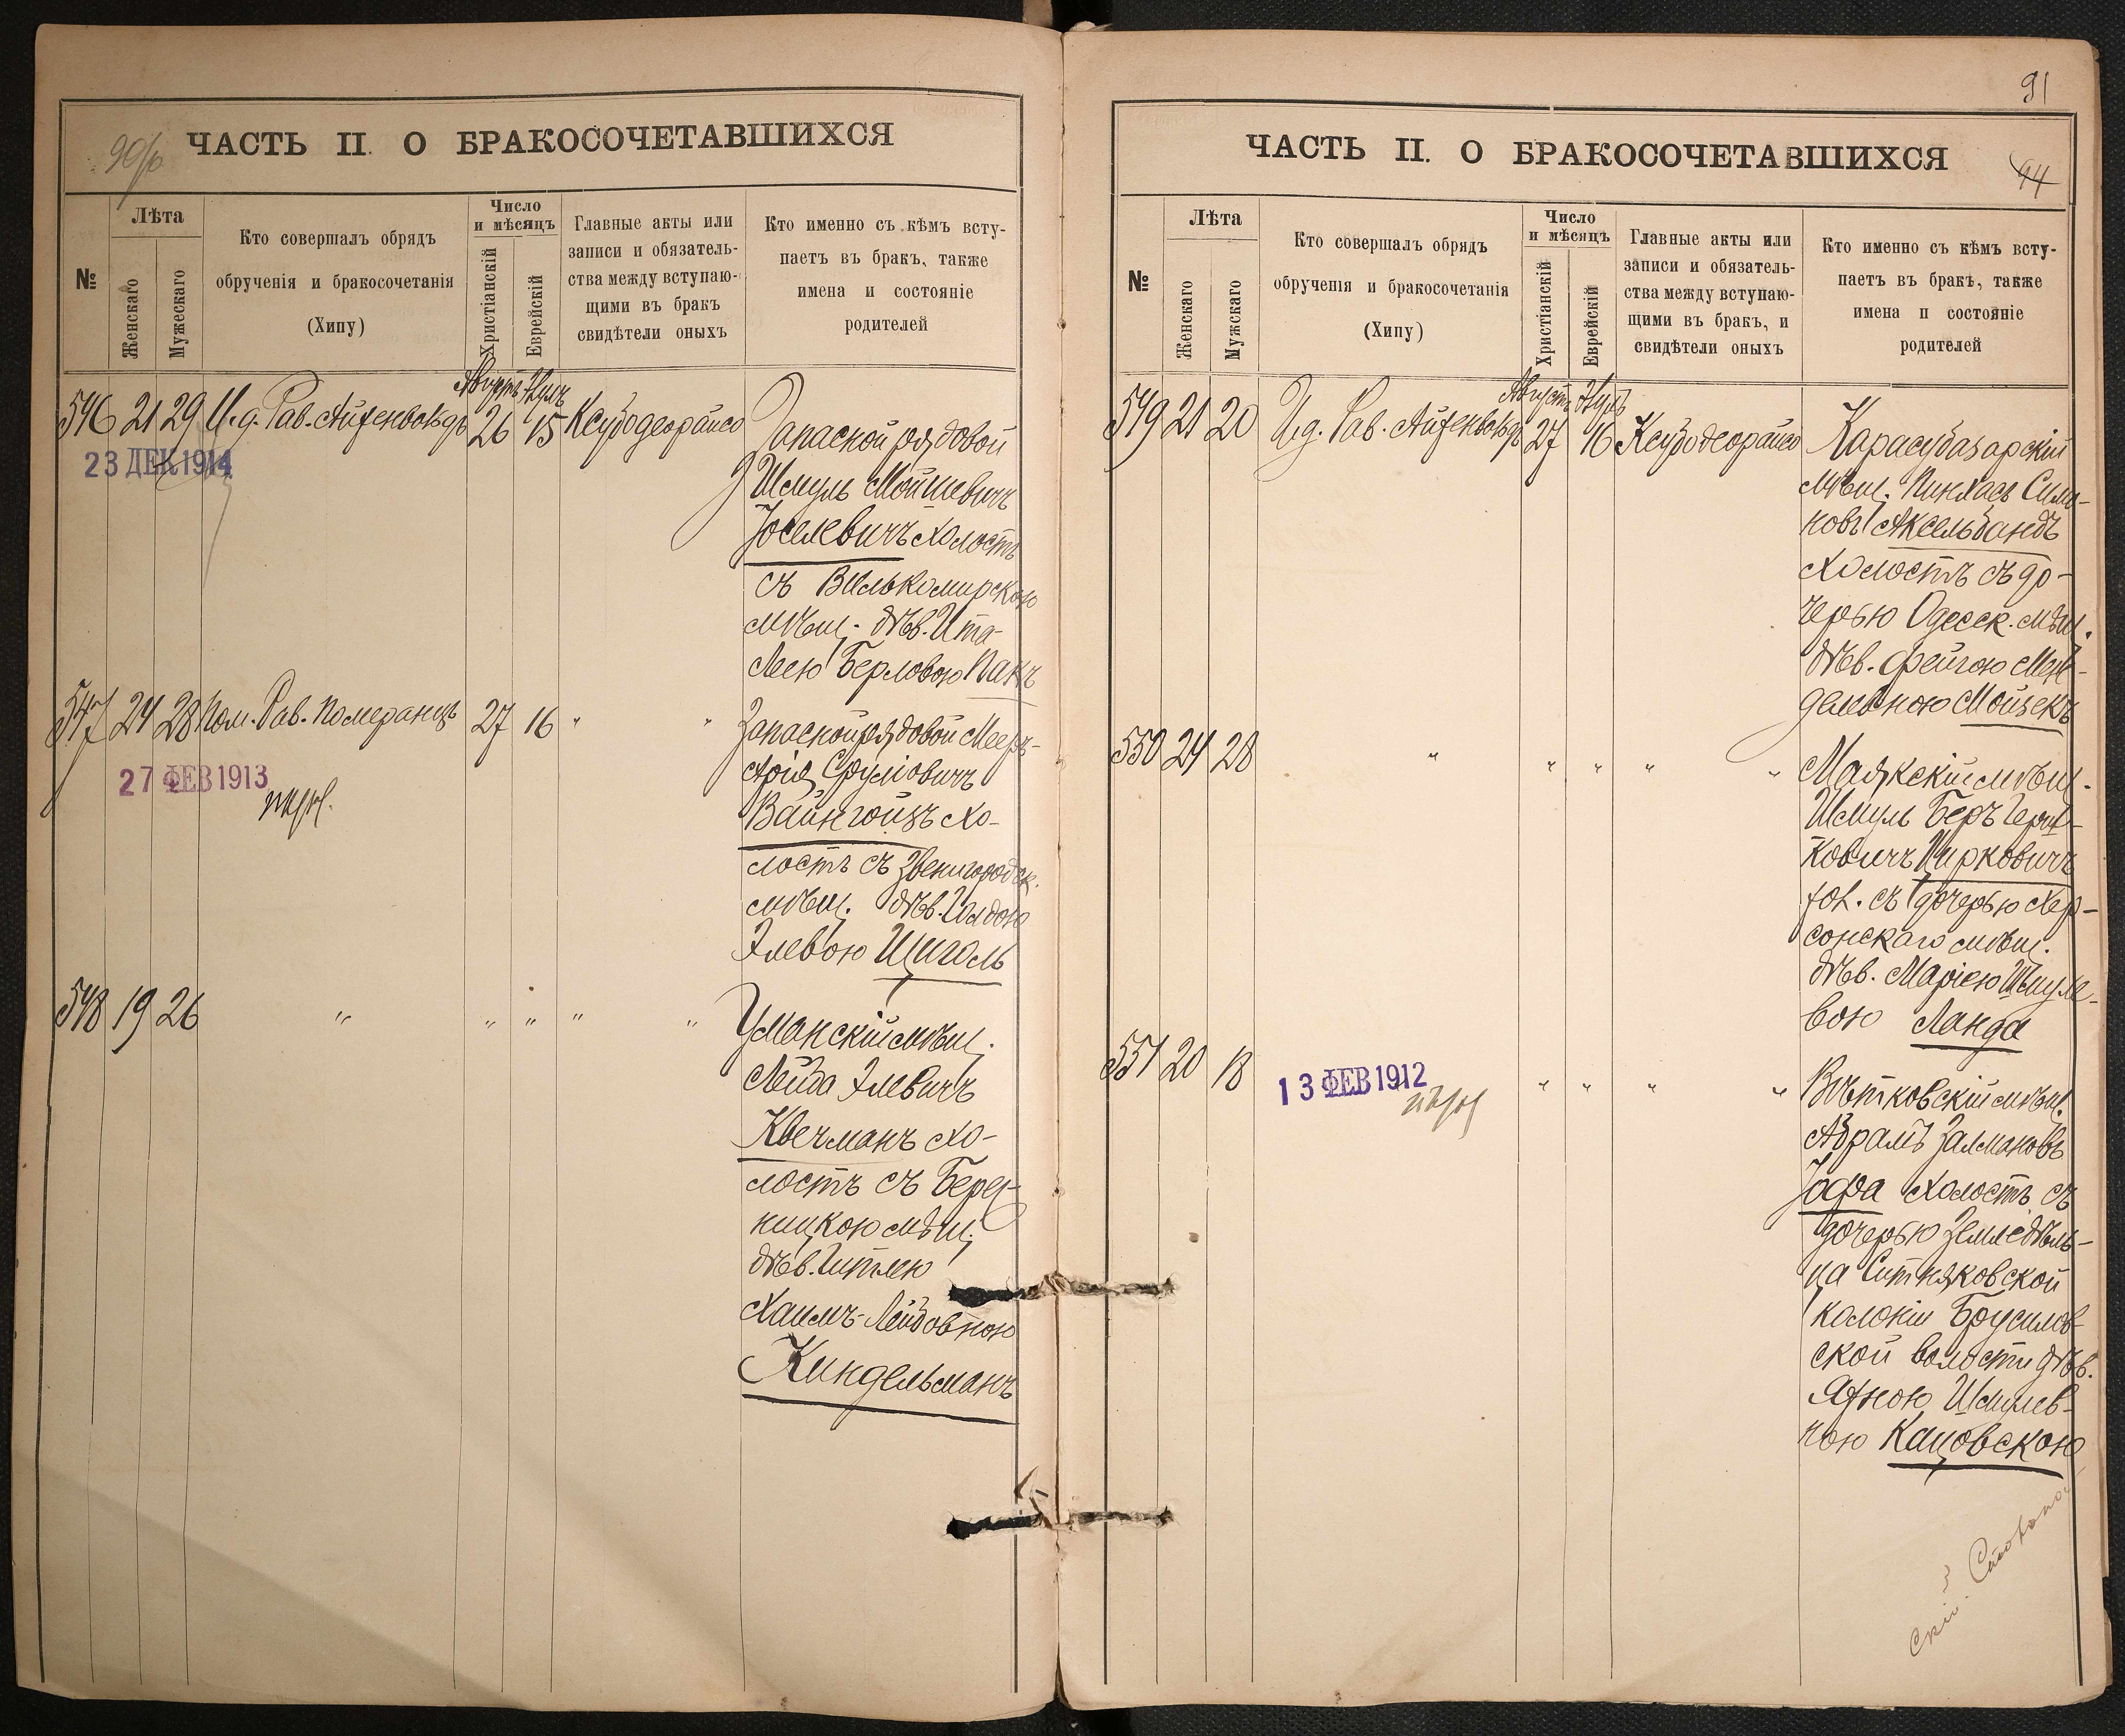 ЧАСТЬ II. О БРАКОСОЧЕТАВШИХСЯ
№
Лѣта
Женскаго
Мужескаго
Кто совершалъ обрядъ
обрученія и бракосочетанія
(Хипу)
Число
и мѣсяцъ
Христіанскій
Еврейскій
Главные акты или
записи и обязатель-
ства между вступаю-
щими въ бракъ
свидѣтели оныхъ
Кто именно съ кѣмъ всту-
паетъ въ бракъ, также
имена и состояніе
родителей
Августъ Элулъ
546 21 29 И. д. Рав. Айзенвольдъ 26 15 Ксубодеорайсо
23 ДЕК 1914
Запасной рядовой
Шмуль Мошевичъ
Іоселевичъ холостъ
съ Вилькомирскою
мѣщ. дѣв. Ита-
Леею Берловою Пакъ
547 24 28 Пом. Рав. Померанцъ 27 16 " "
27 ФЕВ 1913
Запасной рядовой Мееръ-
Арія Сруліовичъ
Вайнгойзъ хо-
лостъ съ Звенигородск.
мѣщ. дѣв. Голдою
Элевою Щиголь
548 19 26 " " " " "
Уманскій мѣщ.
Лейба Элевичъ
Квечманъ хо-
лостъ съ Берез-
ницкою мѣщ.
дѣв. Гитлею
Хаимъ-Лейбовною
Киндельманъ
91
ЧАСТЬ II. О БРАКОСОЧЕТАВШИХСЯ
94
№
Лѣта
Женскаго
Мужскаго
Кто совершалъ обрядъ
обрученія и бракосочетанія
(Хипу)
Число
и мѣсяцъ
Христіанскій
Еврейскій
Главные акты или
записи и обязатель-
ства между вступаю-
щими въ бракъ, и
свидѣтели оныхъ
Кто именно съ кѣмъ всту-
паетъ въ бракъ, также
имена и состояніе
родителей
Августъ Элулъ
549 21 20 И. д. Рав. Айзенвольдъ 27 16 Ксубодеорайсо
Карасубазарскій
мѣщ. Пинхасъ Симо-
новъ Аксельбандъ
холостъ съ до-
черью Одесск. мѣщ.
дѣв. Фейгою Мен-
делевною Мойзекъ
550 24 28 " " " " "
Маякскій мѣщ.
Шмуль Беръ Герш-
ковичъ Цирковичъ
хол. съ дочерью Хер-
сонскаго мѣщ.
дѣв. Маріею Шмуле-
вою Ланда
551 20 18 " " " "
13 ФЕВ 1912
Вѣтковскій мѣщ.
Абрамъ Залмановъ
Іоффа холостъ съ
дочерью Земледѣль-
ца Ситняковской
колоніи Брусилов-
ской волости дѣв.
Яхною Шмулев-
ною Кацовскою